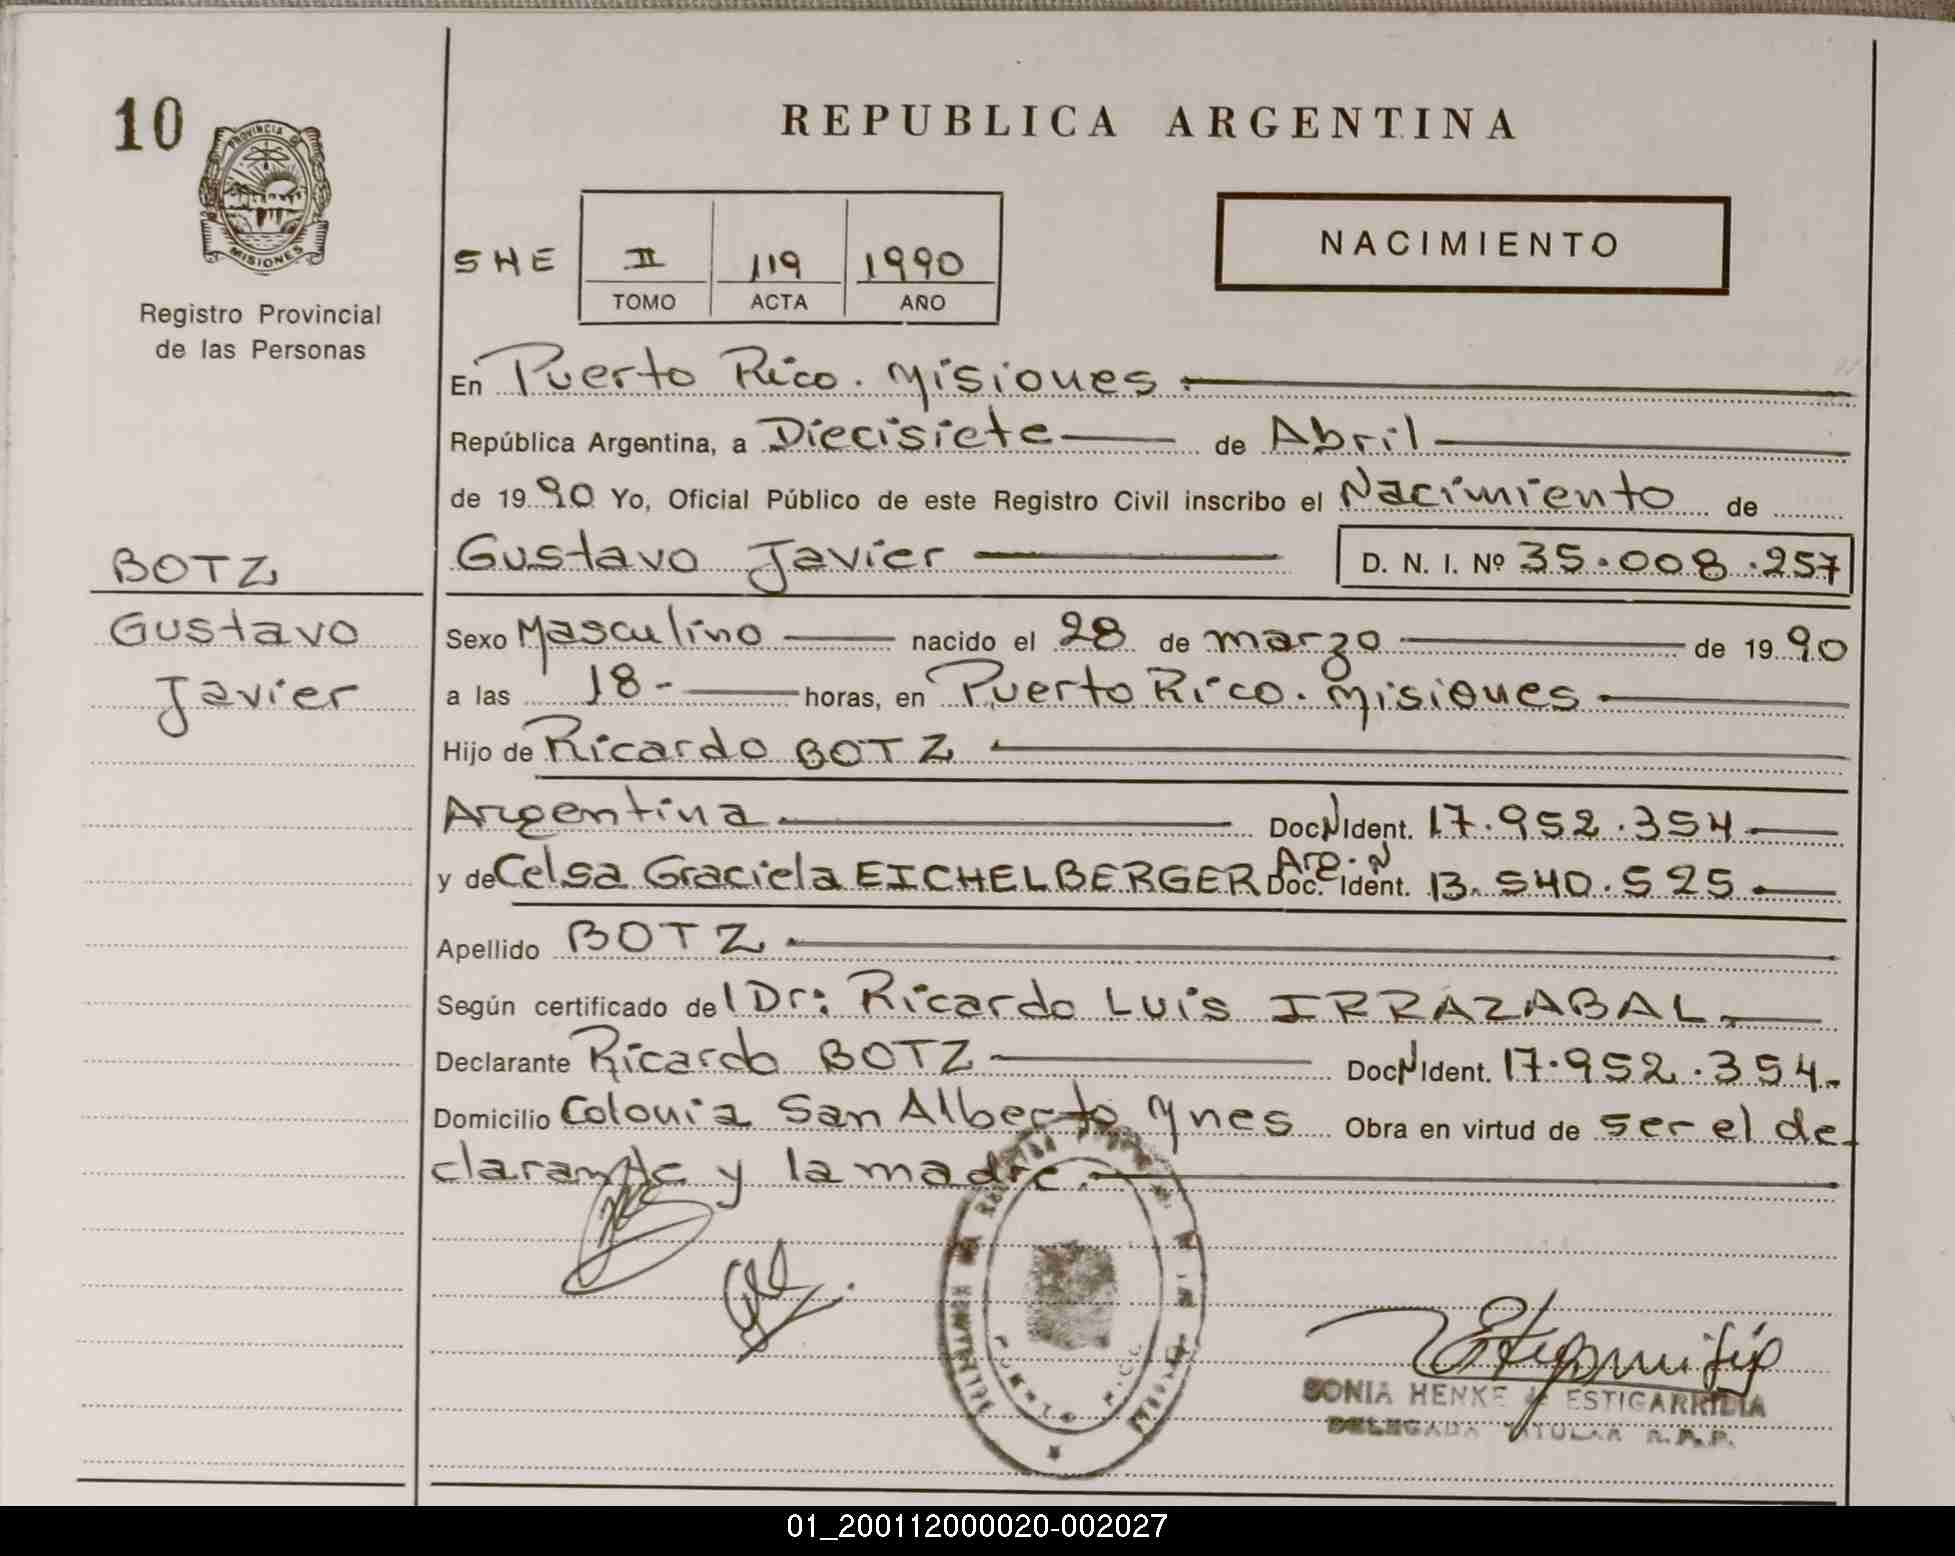 10
PROVINCIA D
MISIONES
Registro Provincial
de las Personas
REPUBLICA ARGENTINA
NACIMIENTO
SHE II 119 1990
TOMO ACTA AÑO
En Puerto Rico. Misiones
República Argentina, a Diecisiete de Abril
de 1990 Yo, Oficial Público de este Registro Civil inscribo el Nacimiento de
Gustavo Javier D. N. I. Nº 35.008.257
BOTZ
Gustavo
Javier
Sexo Masculino nacido el 28 de marzo de 1990
a las 18- horas, en Puerto Rico. Misiones
Hijo de Ricardo BOTZ
Argentina Doc N Ident. 17.952.354
y de Celsa Graciela EICHELBERGER Arg. N Doc. Ident. 13.540.525
Apellido BOTZ
Según certificado del Dr: Ricardo Luis IRRAZABAL
Declarante Ricardo BOTZ Doc N Ident. 17.952.354.
Domicilio Colonia San Alberto Ynes Obra en virtud de ser el de-
clarante y la madre.
PUERTO RICO
SONIA HENKE de ESTIGARRIBIA
DELEGADA TITULAR R. P. P.
01_200112000020-002027